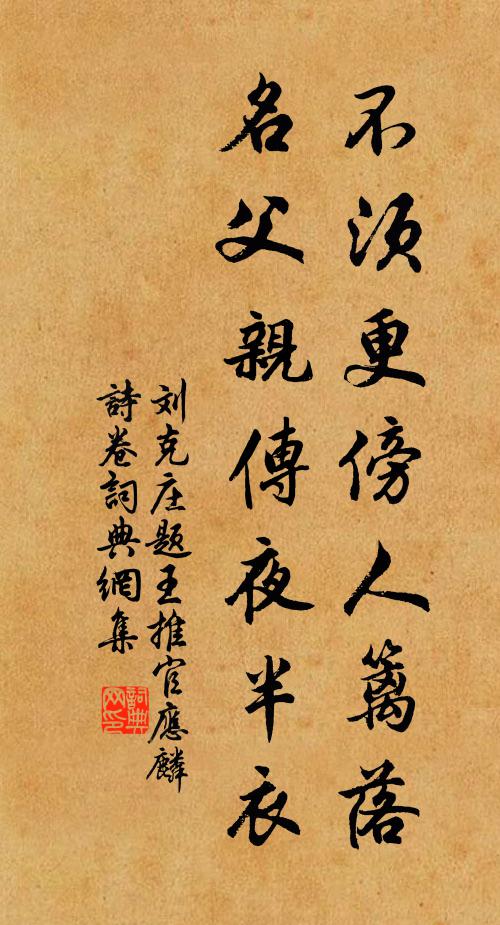 不须更傍人篱落
名父親傳夜半衣
刘克庄题王推官應麟
詩卷詞典網集
詞典网印